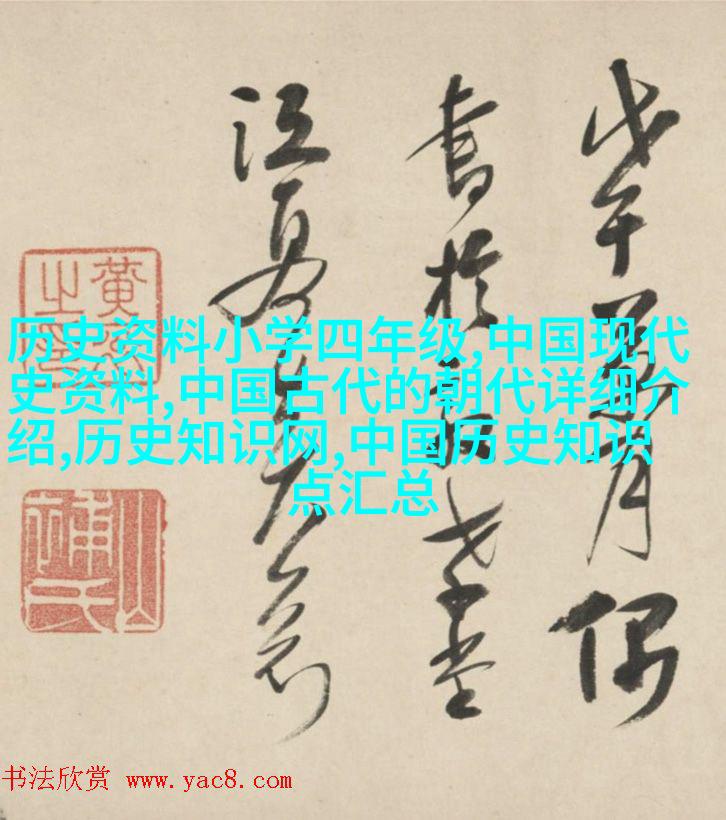 戊午月偶
書於堂
江夏
历史资料小学四年级,中国现代
史资料,中国古代的朝代详细介
绍,历史知识网,中国历史知识
点汇总
书法欣赏 www.yac8.com